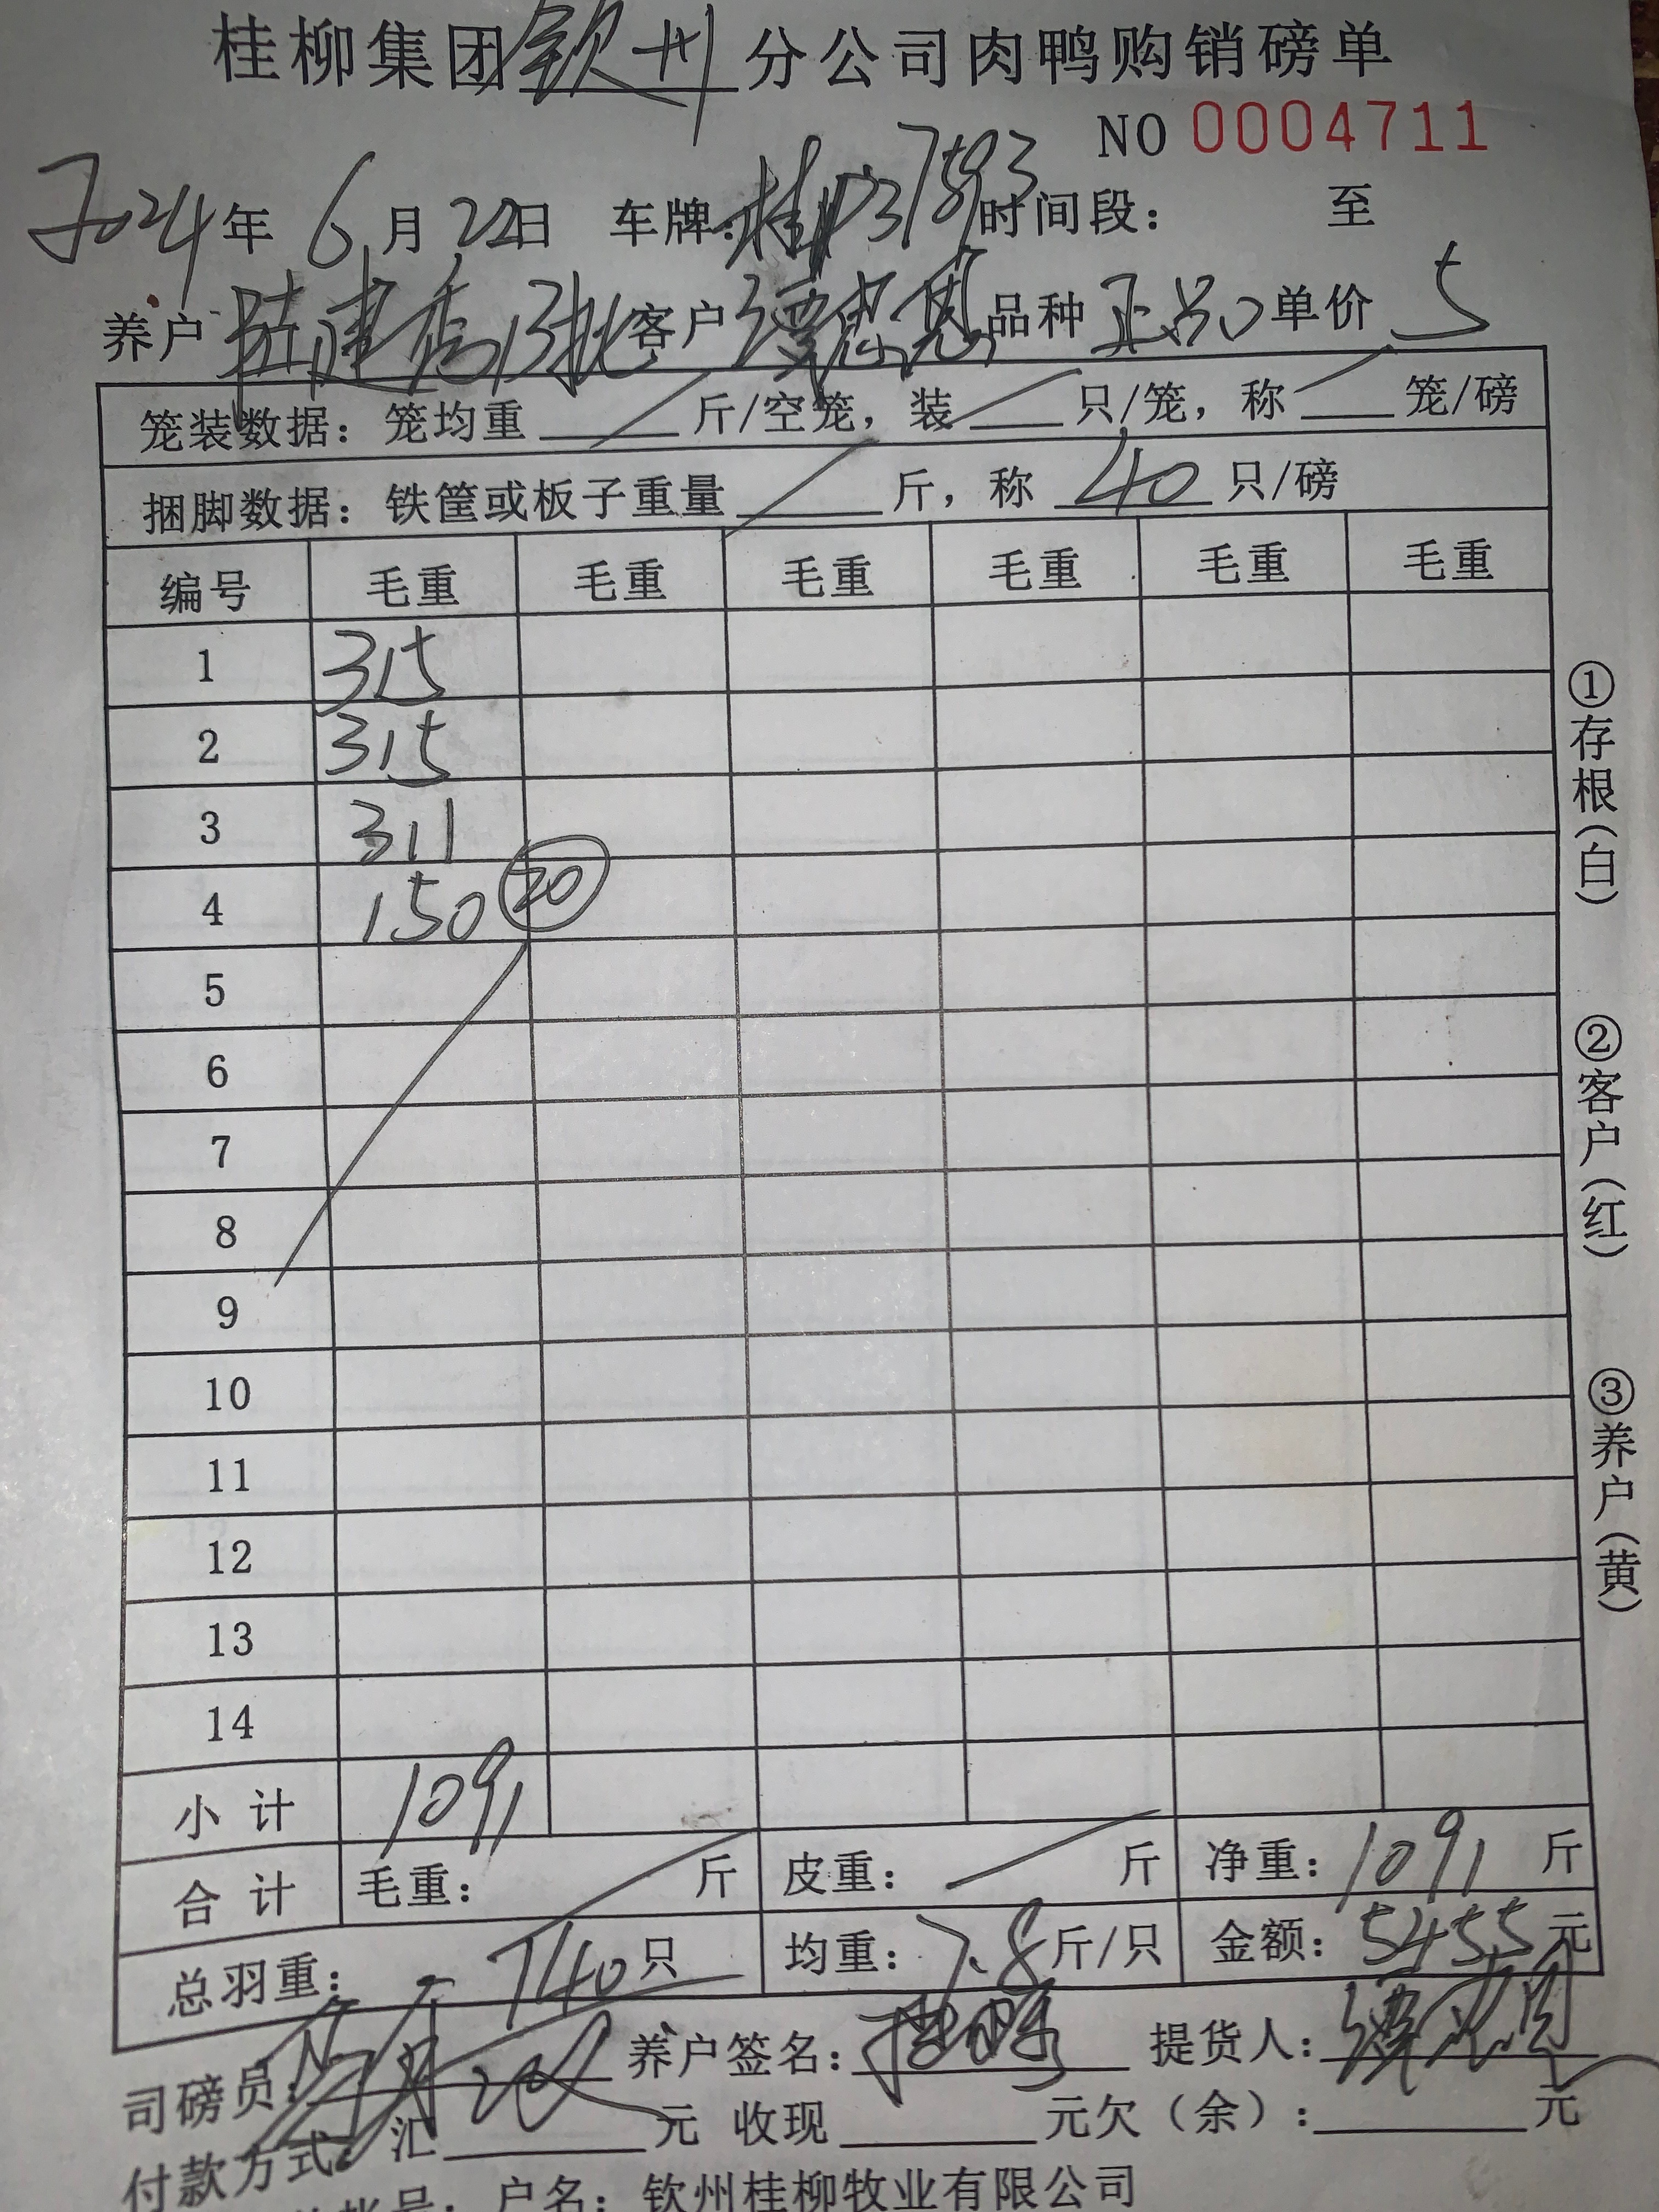 桂柳集团钦州分公司肉鸭购销磅单
NO 0004711
2024年 6月 22日 车牌：桂 D37593 时间段： 至
养户 陆建 批 客户 谭忠 品种 正品 单价 5
笼装数据：笼均重 斤/空笼，装 只/笼，称 笼/磅
捆脚数据：铁筐或板子重量 斤，称 40 只/磅
编号 毛重 毛重 毛重 毛重 毛重 毛重
1 315
2 315
3 311
4 150 20
5
6
7
8
9
10
11
12
13
14
小计 1091
合计 毛重： 斤 皮重： 斤 净重：1091 斤
总羽重： 140只 均重：7.8斤/只 金额：5455元
司磅员： 养户签名： 提货人：
付款方式：汇 元 收现 元欠（余）： 元
帐号：户名：钦州桂柳牧业有限公司
①存根（白）
②客户（红）
③养户（黄）